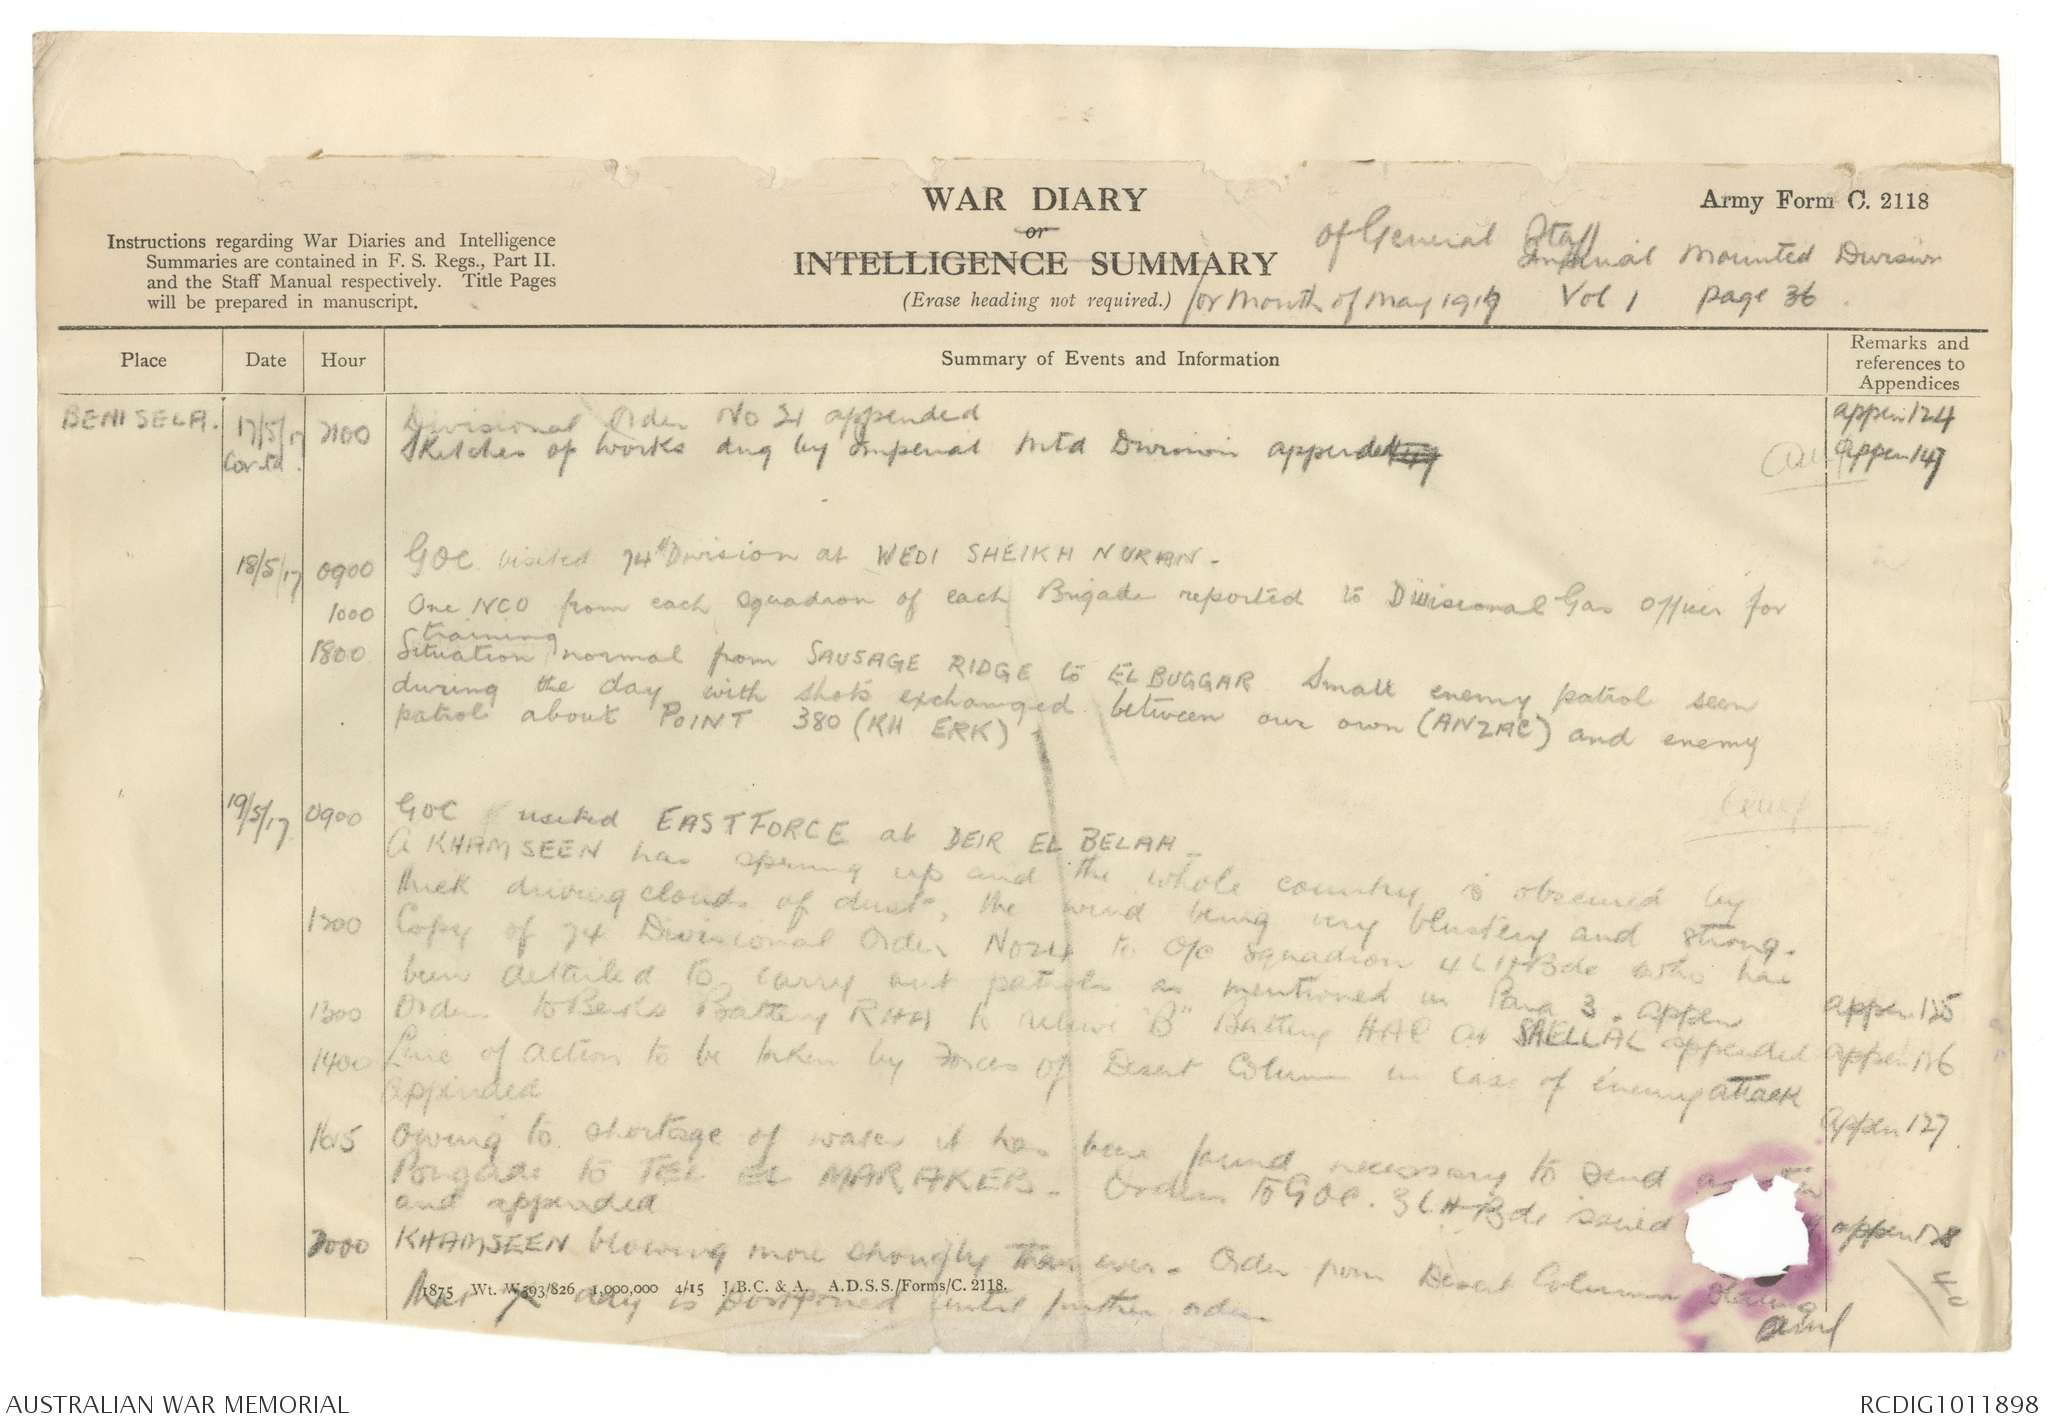 WAR DIARY
or
INTELLIGENCE SUMMARY
(Erase heading not required.)
Army Form C. 2118
Instructions regarding War Diaries and Intelligence
Summaries are contained in F. S. Regs., Part II.
and the Staff Manual respectively. Title Pages
will be prepared in manuscript.
of General Staff
Imperial Mounted Division
for Month of May 1917 Vol 1 page 36
Place Date Hour Summary of Events and Information Remarks and references to Appendices
BENI SELA. 17/5/17 2100 Divisional Order No 21 appended appen 124
Contd. Sketches of works dug by Imperial Mtd Division appended appen 147
18/5/17 0900 GOC visited 74th Division at WEDI SHEIKH NURAN.
1000 One NCO from each squadron of each Brigade reported to Divisional Gas Officer for
training
1800 Situation normal from SAUSAGE RIDGE to EL BUGGAR Small enemy patrol seen
during the day with shots exchanged between our own (ANZAC) and enemy
patrol about POINT 380 (KH ERK).
19/5/17 0900 GOC visited EASTFORCE at DEIR EL BELAH
A KHAMSEEN has sprung up and the whole country is obscured by
thick driving clouds of dust, the wind being very blustery and strong.
1200 Copy of 74 Divisional Order No 24 to O/C squadron 4 LH Bde who has
been detailed to carry out patrols as mentioned in Para 3. appen appen 125
1300 Orders to Berks Battery RHA to relieve "B" Battery HAC at SHELLAL appended appen 126
1400 Line of action to be taken by Forces of Desert Column in case of enemy attack
appended appen 127
1615 Owing to shortage of water it has been found necessary to send
Brigade to TEL EL MARAKEB. Orders to GOC. 3 LH Bde
and appended appen 128
2000 KHAMSEEN blowing more strongly than ever. Order from Desert Column stating
that Z day is postponed until further orders.
1875 Wt. W593/826 1,000,000 4/15 J.B.C. & A. A.D.S.S./Forms/C. 2118.
AUSTRALIAN WAR MEMORIAL
RCDIG1011898